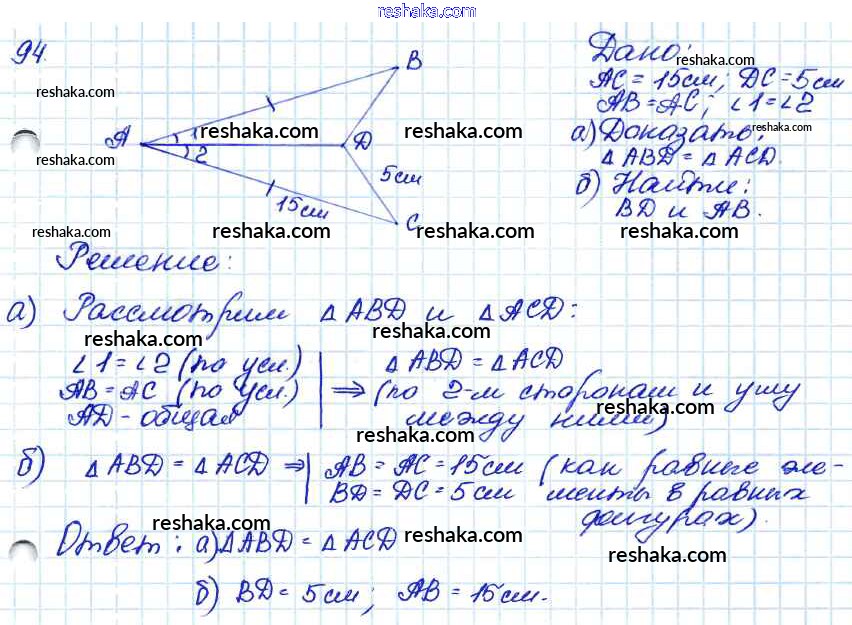 reshaka.com
94.
B
A
1
2
D
5см
15см
C
Дано:
AC = 15см; DC = 5см
AB = AC; ∠1 = ∠2
а) Доказать:
△ ABD = △ ACD.
б) Найти:
BD и AB.
Решение:
а) Рассмотрим △ ABD и △ ACD:
∠1 = ∠2 (по усл.) | △ ABD = △ ACD
AB = AC (по усл.) | ⇒ (по 2-м сторонам и углу
AD - общая | между ними)
б) △ ABD = △ ACD ⇒ | AB = AC = 15см (как равные эле-
BD = DC = 5см менты в равных
фигурах).
Ответ: а) △ABD = △ ACD
б) BD = 5см; AB = 15см.
reshaka.com
reshaka.com
reshaka.com
reshaka.com
reshaka.com
reshaka.com
reshaka.com
reshaka.com
reshaka.com
reshaka.com
reshaka.com
reshaka.com
reshaka.com
reshaka.com
reshaka.com
reshaka.com
reshaka.com